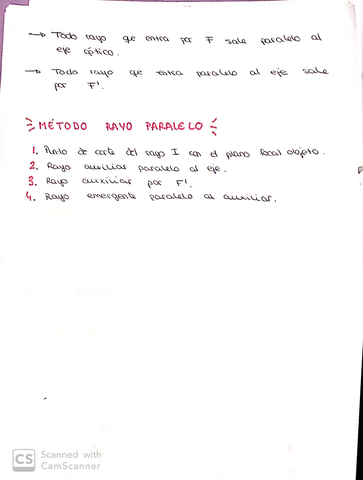 → Todo rayo que entra por F sale paralelo al
eje óptico.
→ Todo rayo que entra paralelo al eje sale
por F'.
MÉTODO RAYO PARALELO
1. Punto de corte del rayo I con el plano focal objeto.
2. Rayo auxiliar paralelo al eje.
3. Rayo auxiliar por F'.
4. Rayo emergente paralelo al auxiliar.
CS Scanned with
CamScanner